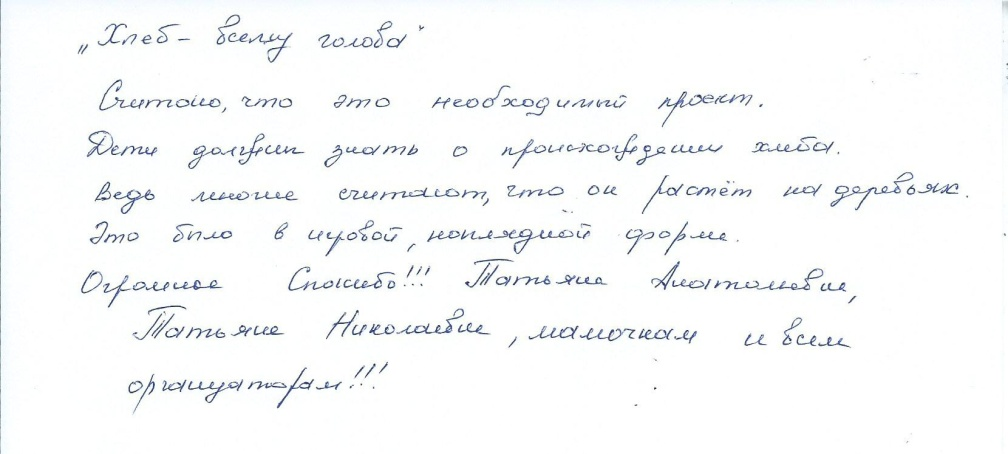 „Хлеб – всему голова"
Считаю, что это необходимый проект.
Дети должны знать о происхождении хлеба.
Ведь многие считают, что он растёт на деревьях.
Это было в игровой, наглядной форме.
Огромное Спасибо!!! Татьяне Анатольевне,
Татьяне Николаевне, мамочкам и всем
организаторам!!!